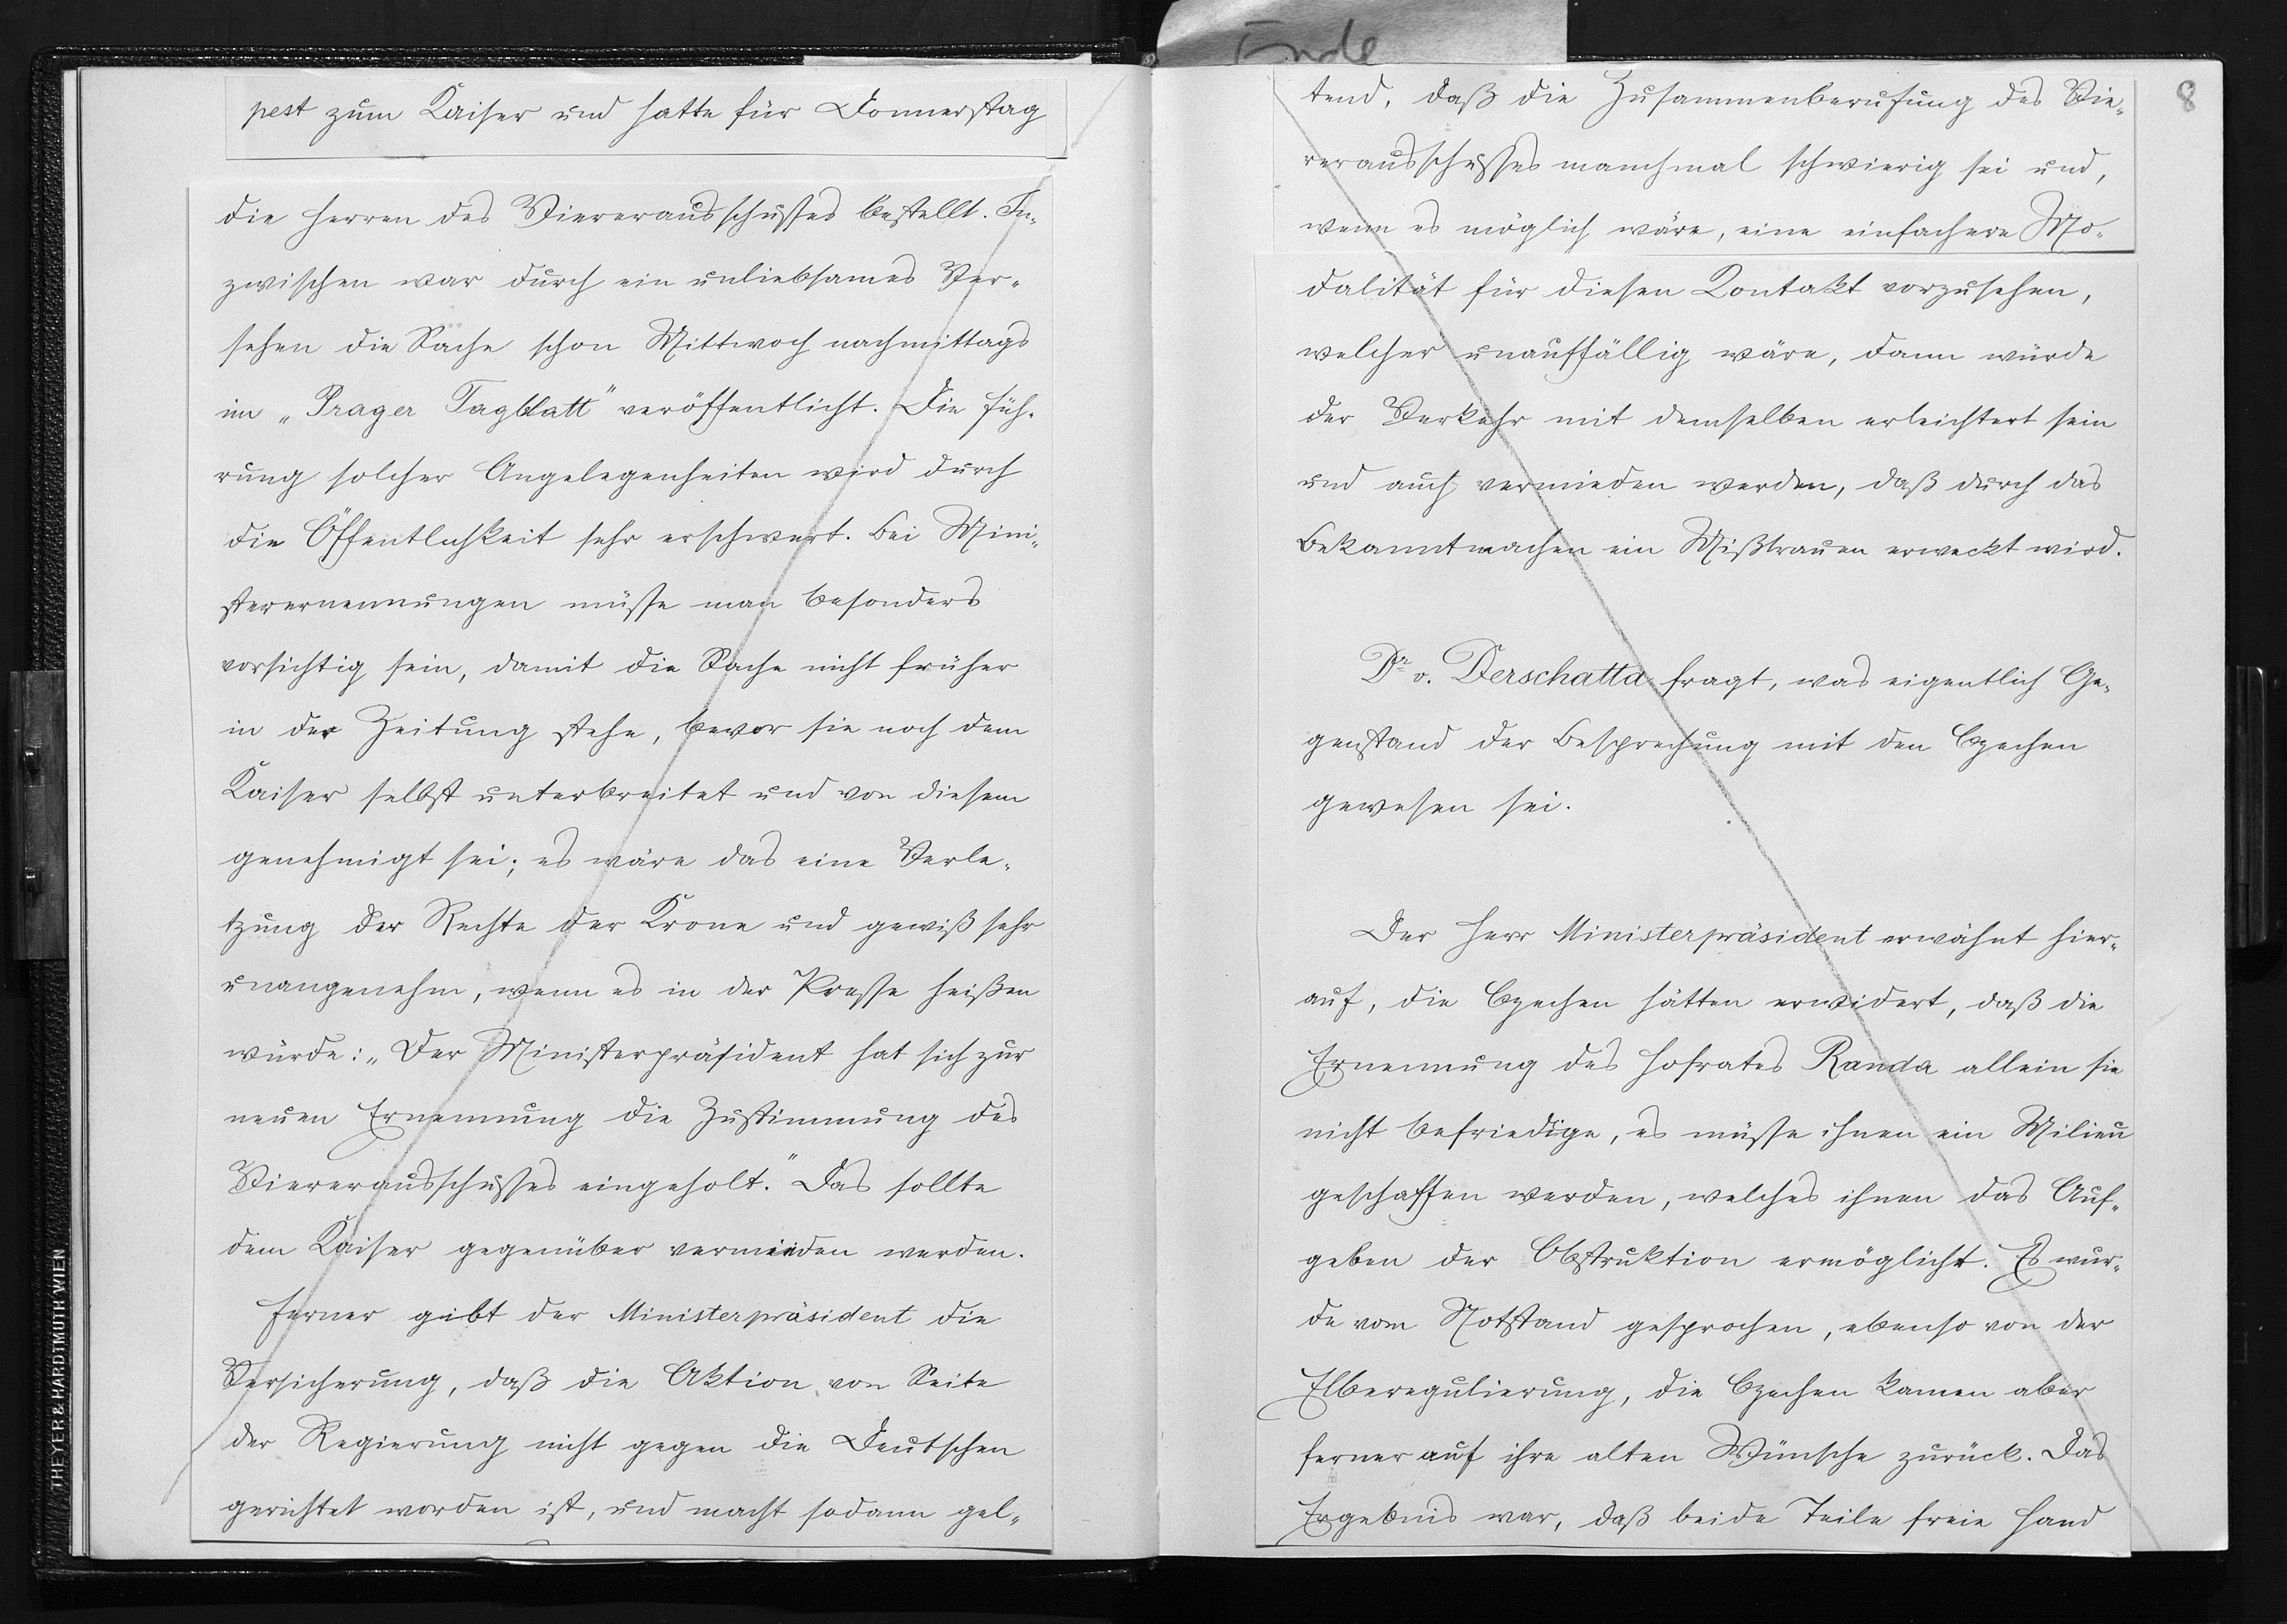 Ende
pest zum Kaiser und hatte für Donnerstag
die Herren des Viererausschusses bestellt. In-
zwischen war durch ein unliebsames Ver-
sehen die Sache schon Mittwoch nachmittags
im „Prager Tagblatt" veröffentlicht. Die Füh-
rung solcher Angelegenheiten wird durch
die Öffentlichkeit sehr erschwert. Bei Mini-
sterernennungen müsse man besonders
vorsichtig sein, damit die Sache nicht früher
in der Zeitung stehe, bevor sie noch dem
Kaiser selbst unterbreitet und von diesem
genehmigt sei; es wäre das eine Verle-
tzung der Rechte der Krone und gewiß sehr
unangenehm, wenn es in der Presse heißen
würde: „Der Ministerpräsident hat sich zur
neuen Ernennung die Zustimmung des
Viererausschusses eingeholt." Das sollte
dem Kaiser gegenüber vermieden werden.
Ferner gibt der Ministerpräsident die
Versicherung, daß die Aktion von Seite
der Regierung nicht gegen die Deutschen
gerichtet worden ist, und macht sodann gel-
THEYER & HARDTMUTH WIEN
8
tend, daß die Zusammenberufung des Vie-
rerausschusses manchmal schwierig sei und,
wenn es möglich wäre, eine einfachere Mo-
dalität für diesen Kontakt vorzusehen,
welcher unauffällig wäre, dann würde
der Verkehr mit demselben erleichtert sein
und auch vermieden werden, daß durch das
Bekanntmachen ein Mißtrauen erweckt wird.
Dr v. Derschatta fragt, was eigentlich Ge-
genstand der Besprechung mit den Czechen
gewesen sei.
Der Herr Ministerpräsident erwähnt hier-
auf, die Czechen hätten erwidert, daß die
Ernennung des Hofrates Randa allein sie
nicht befriedige, es müsse ihnen ein Milieu
geschaffen werden, welches ihnen das Auf-
geben der Obstruktion ermöglicht. Es wur-
de vom Notstand gesprochen, ebenso von der
Elberegulierung, die Czechen kamen aber
ferner auf ihre alten Wünsche zurück. Das
Ergebnis war, daß beide Teile freie Hand